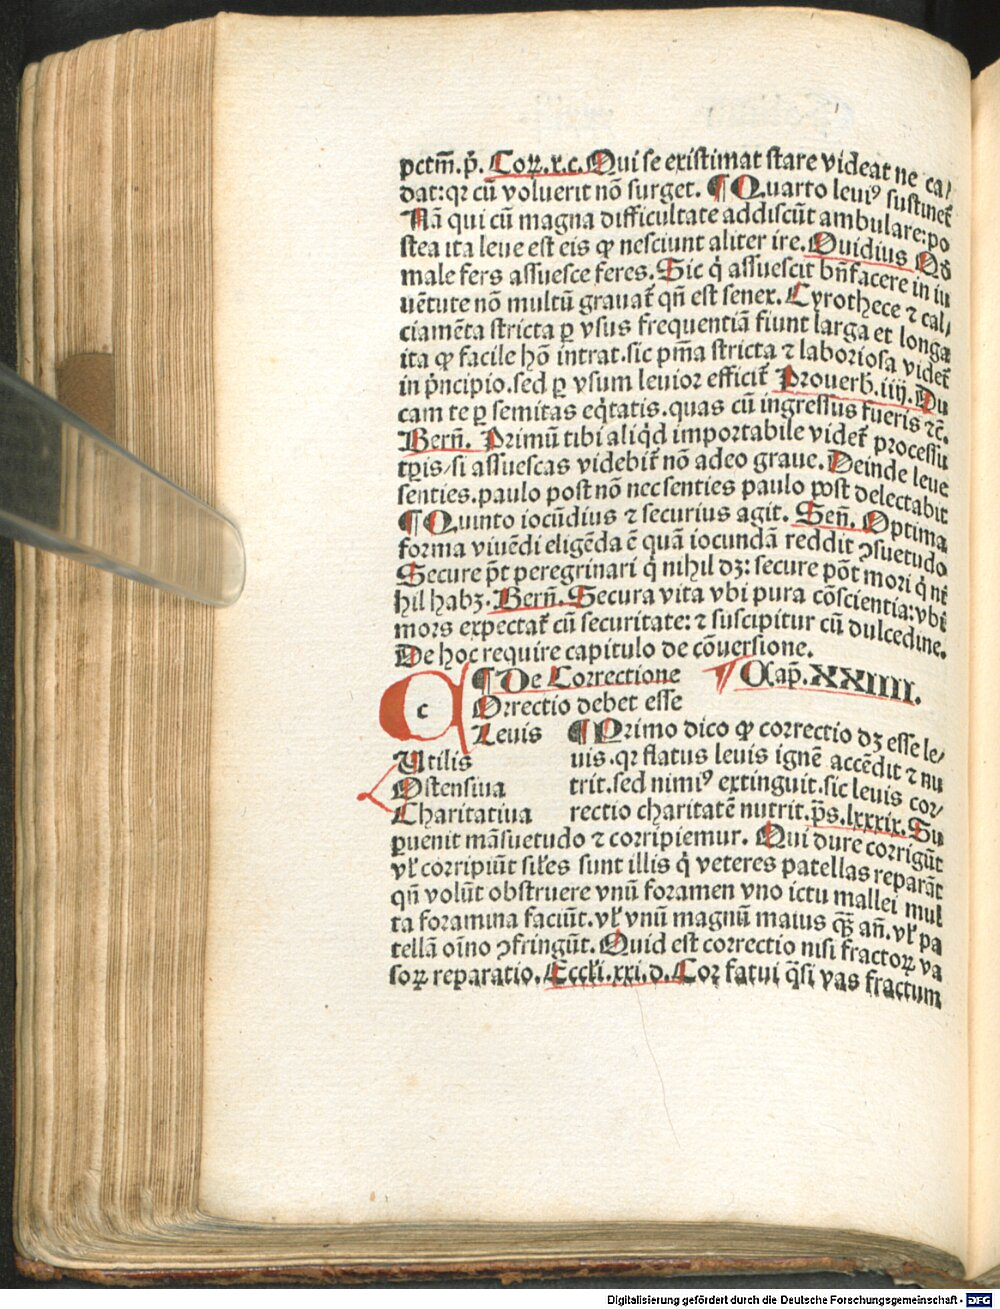 pctm̄.p̄. Coꝝ.x.c. Qui se existimat stare videat ne ca/
dat: qꝛ cū voluerit nō surget. ¶ Quarto leuiꝰ sustinet̄
Nā qui cū magna difficultate addiscūt ambulare: po
stea ita leue est eis ꝙ nesciunt aliter ire. Ouidius Qd̄
male fers assuesce feres. Sic q̇ assuescit bn̄facere in iu
uētute nō multū grauat̄ qn̄ est senex. Cyrothece ⁊ cal/
ciamēta stricta ꝑ vsus frequentiā fiunt larga et longa
ita ꝙ facile hō intrat. sic pm̄a stricta ⁊ laboriosa videt̄
in p̄ncipio. sed ꝑ vsum leuior efficit̄ Prouerb̄. iiij. Du
cam te ꝑ semitas eq̇tatis. quas cū ingressus fueris ⁊c̄.
Bern̄. Primū tibi aliq̇d importabile videt̄ processu
tꝑis/si assuescas videbit̄ nō adeo graue. Deinde leue
senties. paulo post nō nec senties paulo post delectabit
¶ Quinto iocūdius ⁊ securius agit. Sen̄. Optima
forma viuēdi eligēda ē quā iocundā reddit ꝯsuetudo
Secure pōt peregrinari q̇ nihil dꝫ: secure pōt mori q̇ ni
hil habꝫ. Bern̄. Secura vita vbi pura cōscientia: vbi
mors expectat̄ cū securitate: ⁊ suscipitur cū dulcedine.
De hoc require capitulo de cōuersione.
¶ De Correctione ¶ Cap̄. XXIIII.
c Orrectio debet esse
Leuis ¶ Primo dico ꝙ correctio dꝫ esse le/
Utilis uis. qꝛ flatus leuis ignē accēdit ⁊ nu
Ostensiua trit. sed nimiꝰ extinguit. sic leuis cor/
Charitatiua rectio charitatē nutrit. p̄s. lxxxix. Su
ꝑuenit māsuetudo ⁊ corripiemur. Qui dure corrigūt
vl̄ corripiūt sil̄es sunt illis q̇ veteres patellas reparāt
qn̄ volūt obstruere vnū foramen vno ictu mallei mul
ta foramina faciūt. vl̄ vnū magnū maius qꝫ̄ an̄. vl̄ pa
tellā oīno ꝯfringūt. Quid est correctio nisi fractoꝝ va
soꝝ reparatio. Eccl̄i. xxi. d. Cor fatui q̇si vas fractum
Digitalisierung gefördert durch die Deutsche Forschungsgemeinschaft - DFG